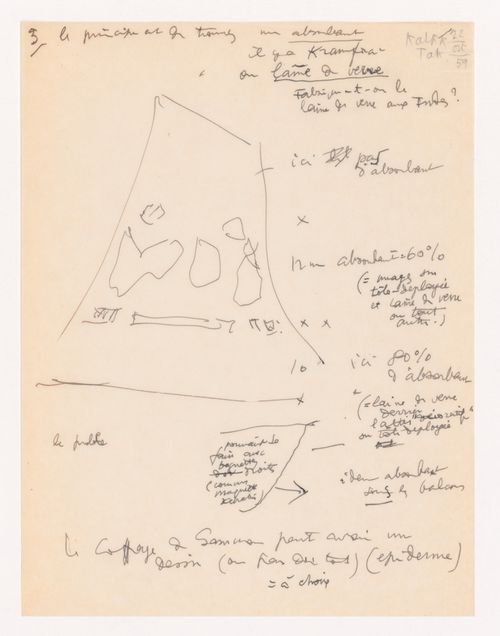 3/ le principe est de trouver un absorbant
il y a Kramfrac
ou laine de verre
Fabrique-t-on le
laine de verre aux Indes?
ici pas
d'absorbant
×
12 m absorbant = 60%
(= nuages en
tôle déployée
et laine de verre
ou tout
autre!)
× ×
10 ici 80%
d'absorbant
×
(= laine de verre
derrière
lattis
ou tôle déployée
le public
pourrait se
faire avec
baguettes
droites
(comme
maquette
idem absorbant
sous les balcons
Le coffrage de Samson peut avoir un
dessin (ou pas du tout) (epiderme)
= à choix